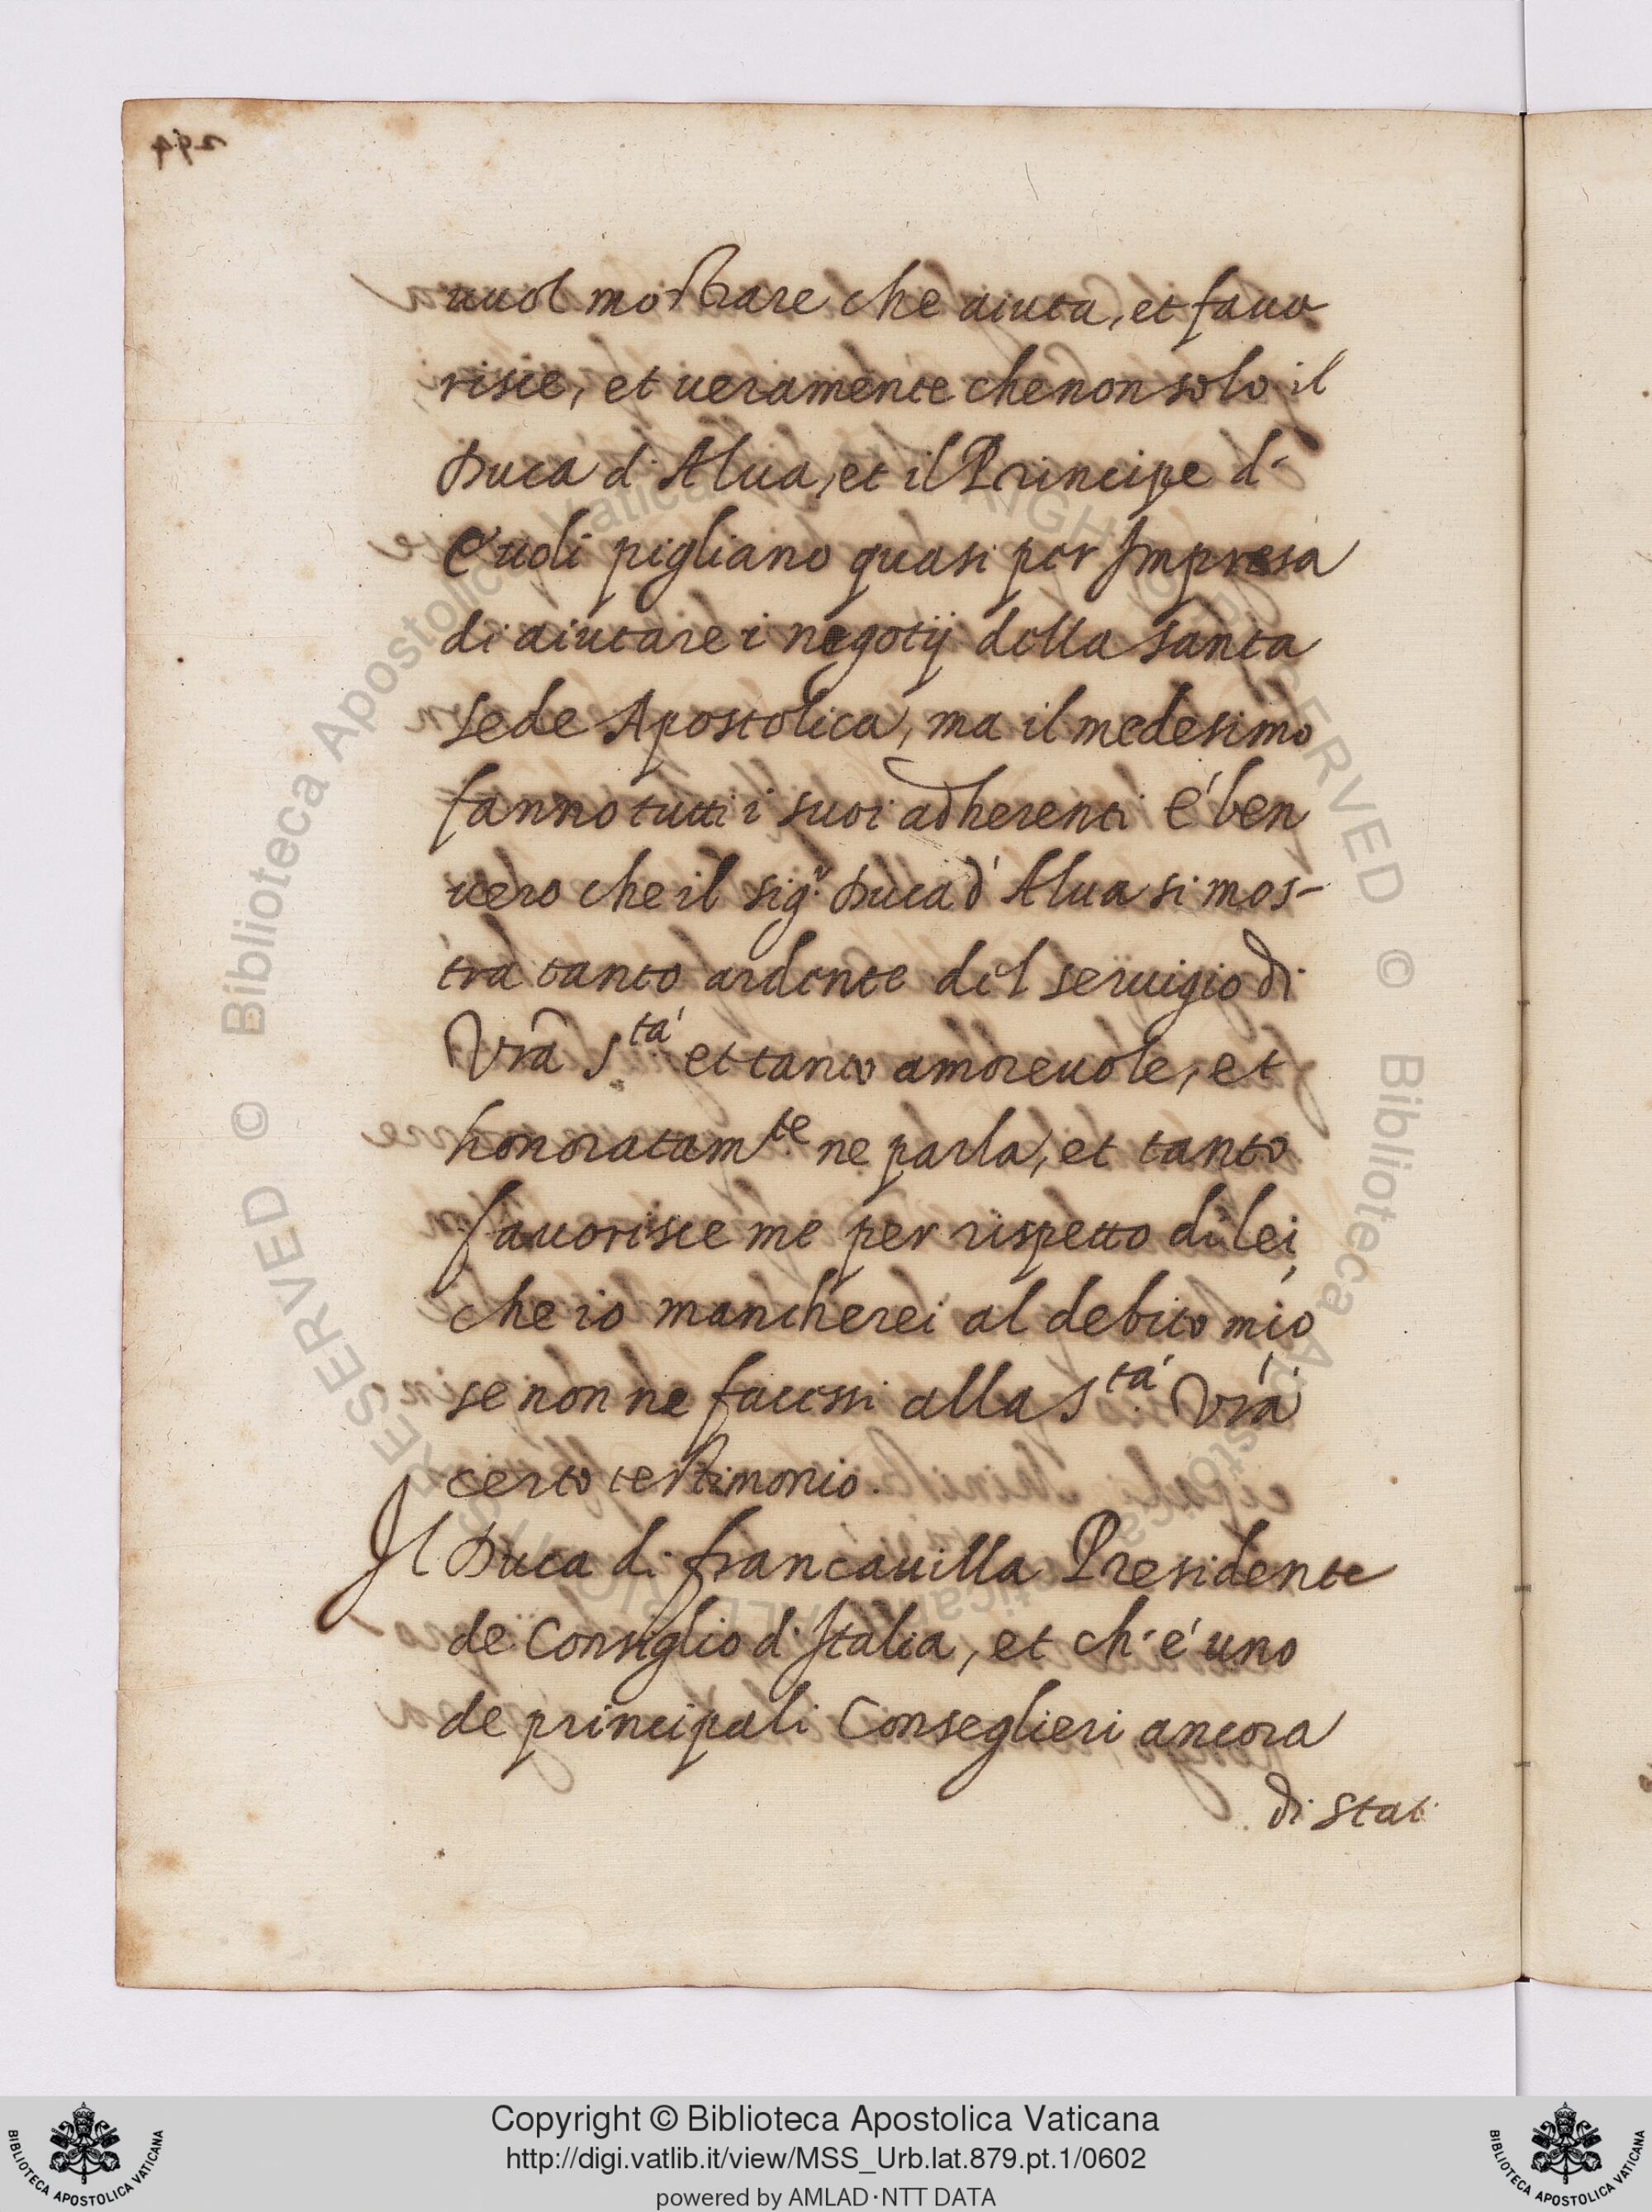 uuol mostrare che aiuta, et fauo
risce, et ueramente che non solo il
Duca d'Alua, et il Principe d'
Euoli pigliano quasi per Impresa
di aiutare i negotij della santa
sede Apostolica, ma il medesimo
fanno tutti i suoi adherenti é ben
uero che il sig.r Duca d'Alua si mos-
tra tanto ardente del seruigio di
Vrà S.tà et tanto amoreuole, et
honoratam.te ne parla, et tanto
fauorisce me per rispetto di lei
che io mancherei al debito mio
se non ne facessi alla S.tà Vrà
certo testimonio.
Il Duca di francauilla Presidente
de Consiglio d'Italia, et ch'é uno
de principali Conseglieri ancora
di stat
Copyright © Biblioteca Apostolica Vaticana
http://digi.vatlib.it/view/MSS_Urb.lat.879.pt.1/0602
powered by AMLAD·NTT DATA
BIBLIOTECA APOSTOLICA VATICANA
BIBLIOTECA APOSTOLICA VATICANA